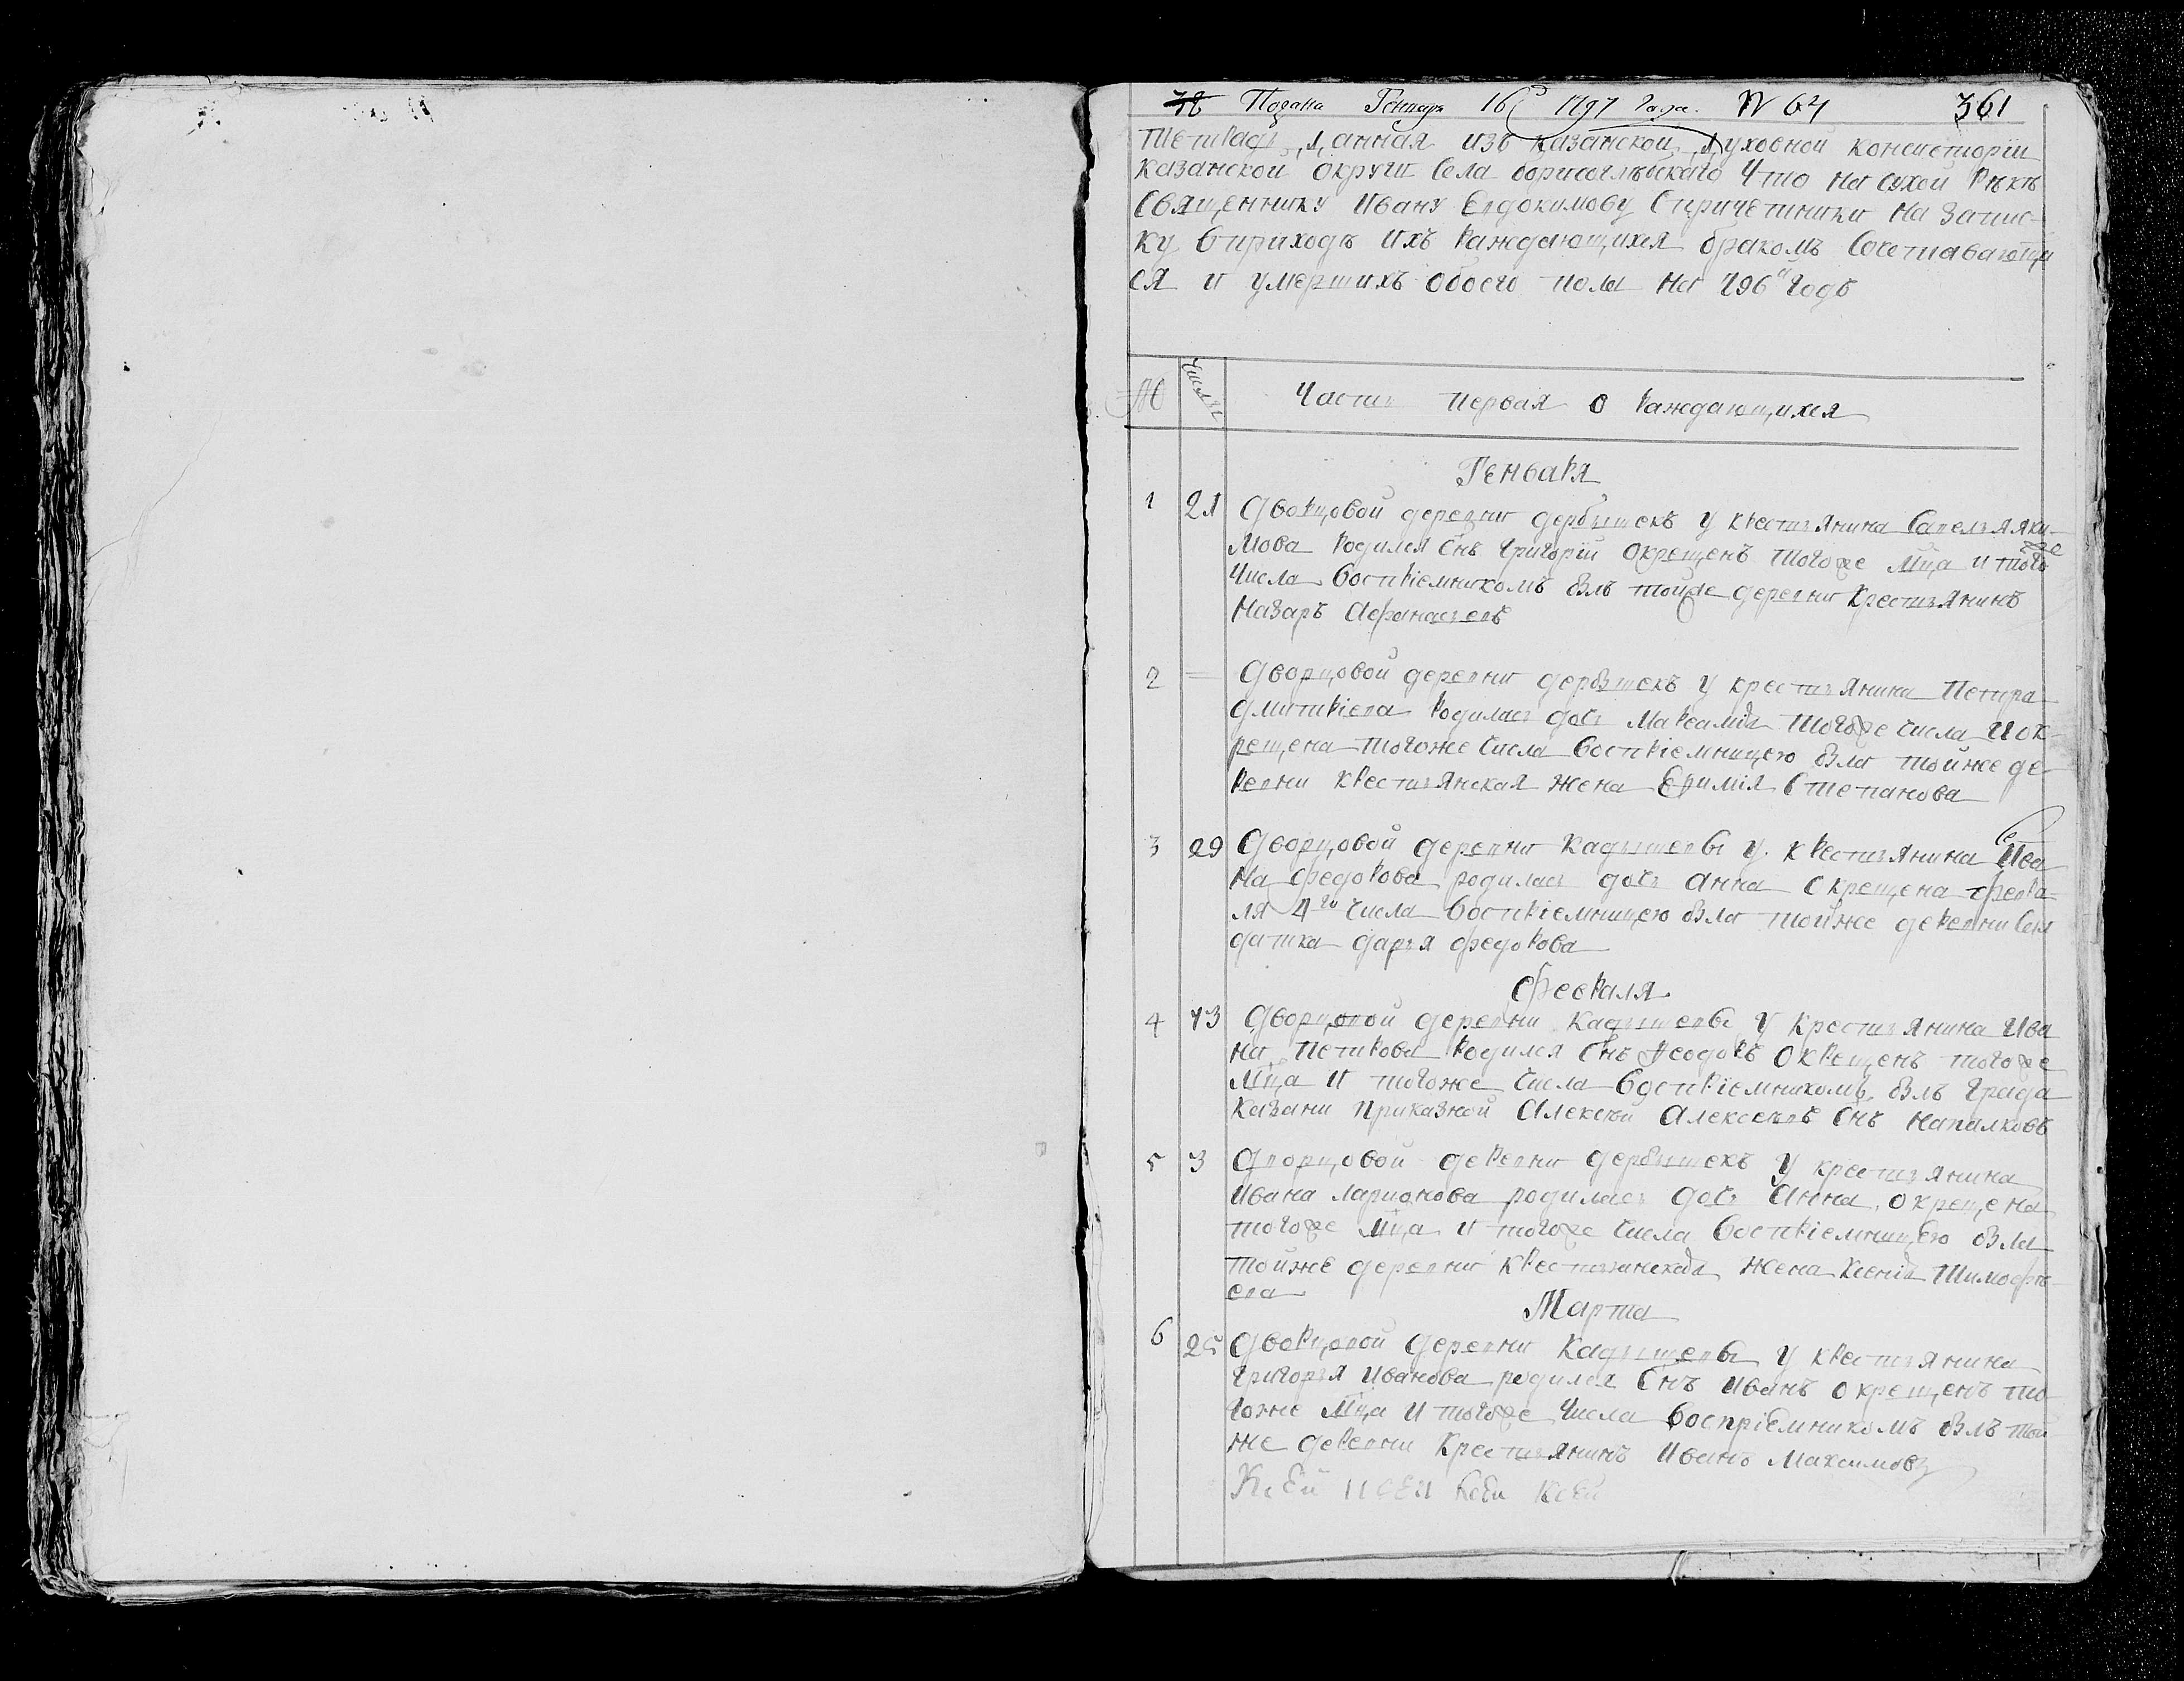 78 Подана Генваря 16 1797 года. N 64 361
Тетрадь данная изъ казанской духовной консисторіи
казанской округи села борисоглѣбскаго Что на сухой рѣкѣ
священнику Ивану Евдокимову с причетники на запис-
ку в приходѣ ихъ раждающихся бракомъ сочетавающи
ся и умершихъ обоего пола на 796 годъ
№ Числа
Часть первая о раждающихся
Генваря
1 21 Дворцовой деревни дербышекъ у крестьянина Савелья Яки-
мова родился Снъ григорій окрещенъ тогоже мца и того же
числа воспріемникомъ былъ тойже деревни крестьянинъ
Назаръ Афанасьевъ
2 = Дворцовой деревни дербышекъ у крестьянина Петра
дмитріева родилась дочь Максамида тогоже числа и ок-
рещена тогоже числа воспріемницею была тойже де-
ревни крестьянская жена Ефимія Степанова
3 29 Дворцовой деревни Кадышевы у крестьянина Ива
на федорова родилась дочь анна окрещена февра-
ля 4го числа воспріемницею была тойже деревни Сол
датка дарья федорова
Февраля
4 13 Дворцовой деревни Кадышевы у крестьянина Ива
на Петрова родился Снъ Феодоръ окрещенъ тогоже
мца и тогоже числа воспріемникомъ былъ града
казани приказной Алексѣй Алексѣевъ Снъ Напалковъ
5 3 Дворцовой деревни дербышекъ у крестьянина
Ивана ларионова родилась дочь Анна окрещена
тогоже мца и тогоже числа воспріемницею была
тойже деревни крестьянская жена Ксенія Тимофѣ-
ева
Марта
6 25 Дворцовой деревни Кадышевы у крестьянина
григорья Иванова родился Снъ Иванъ окрещенъ то
гоже мца и тогоже числа воспріемникомъ былъ той
же деревни крестьянинъ Иванъ Максимовъ